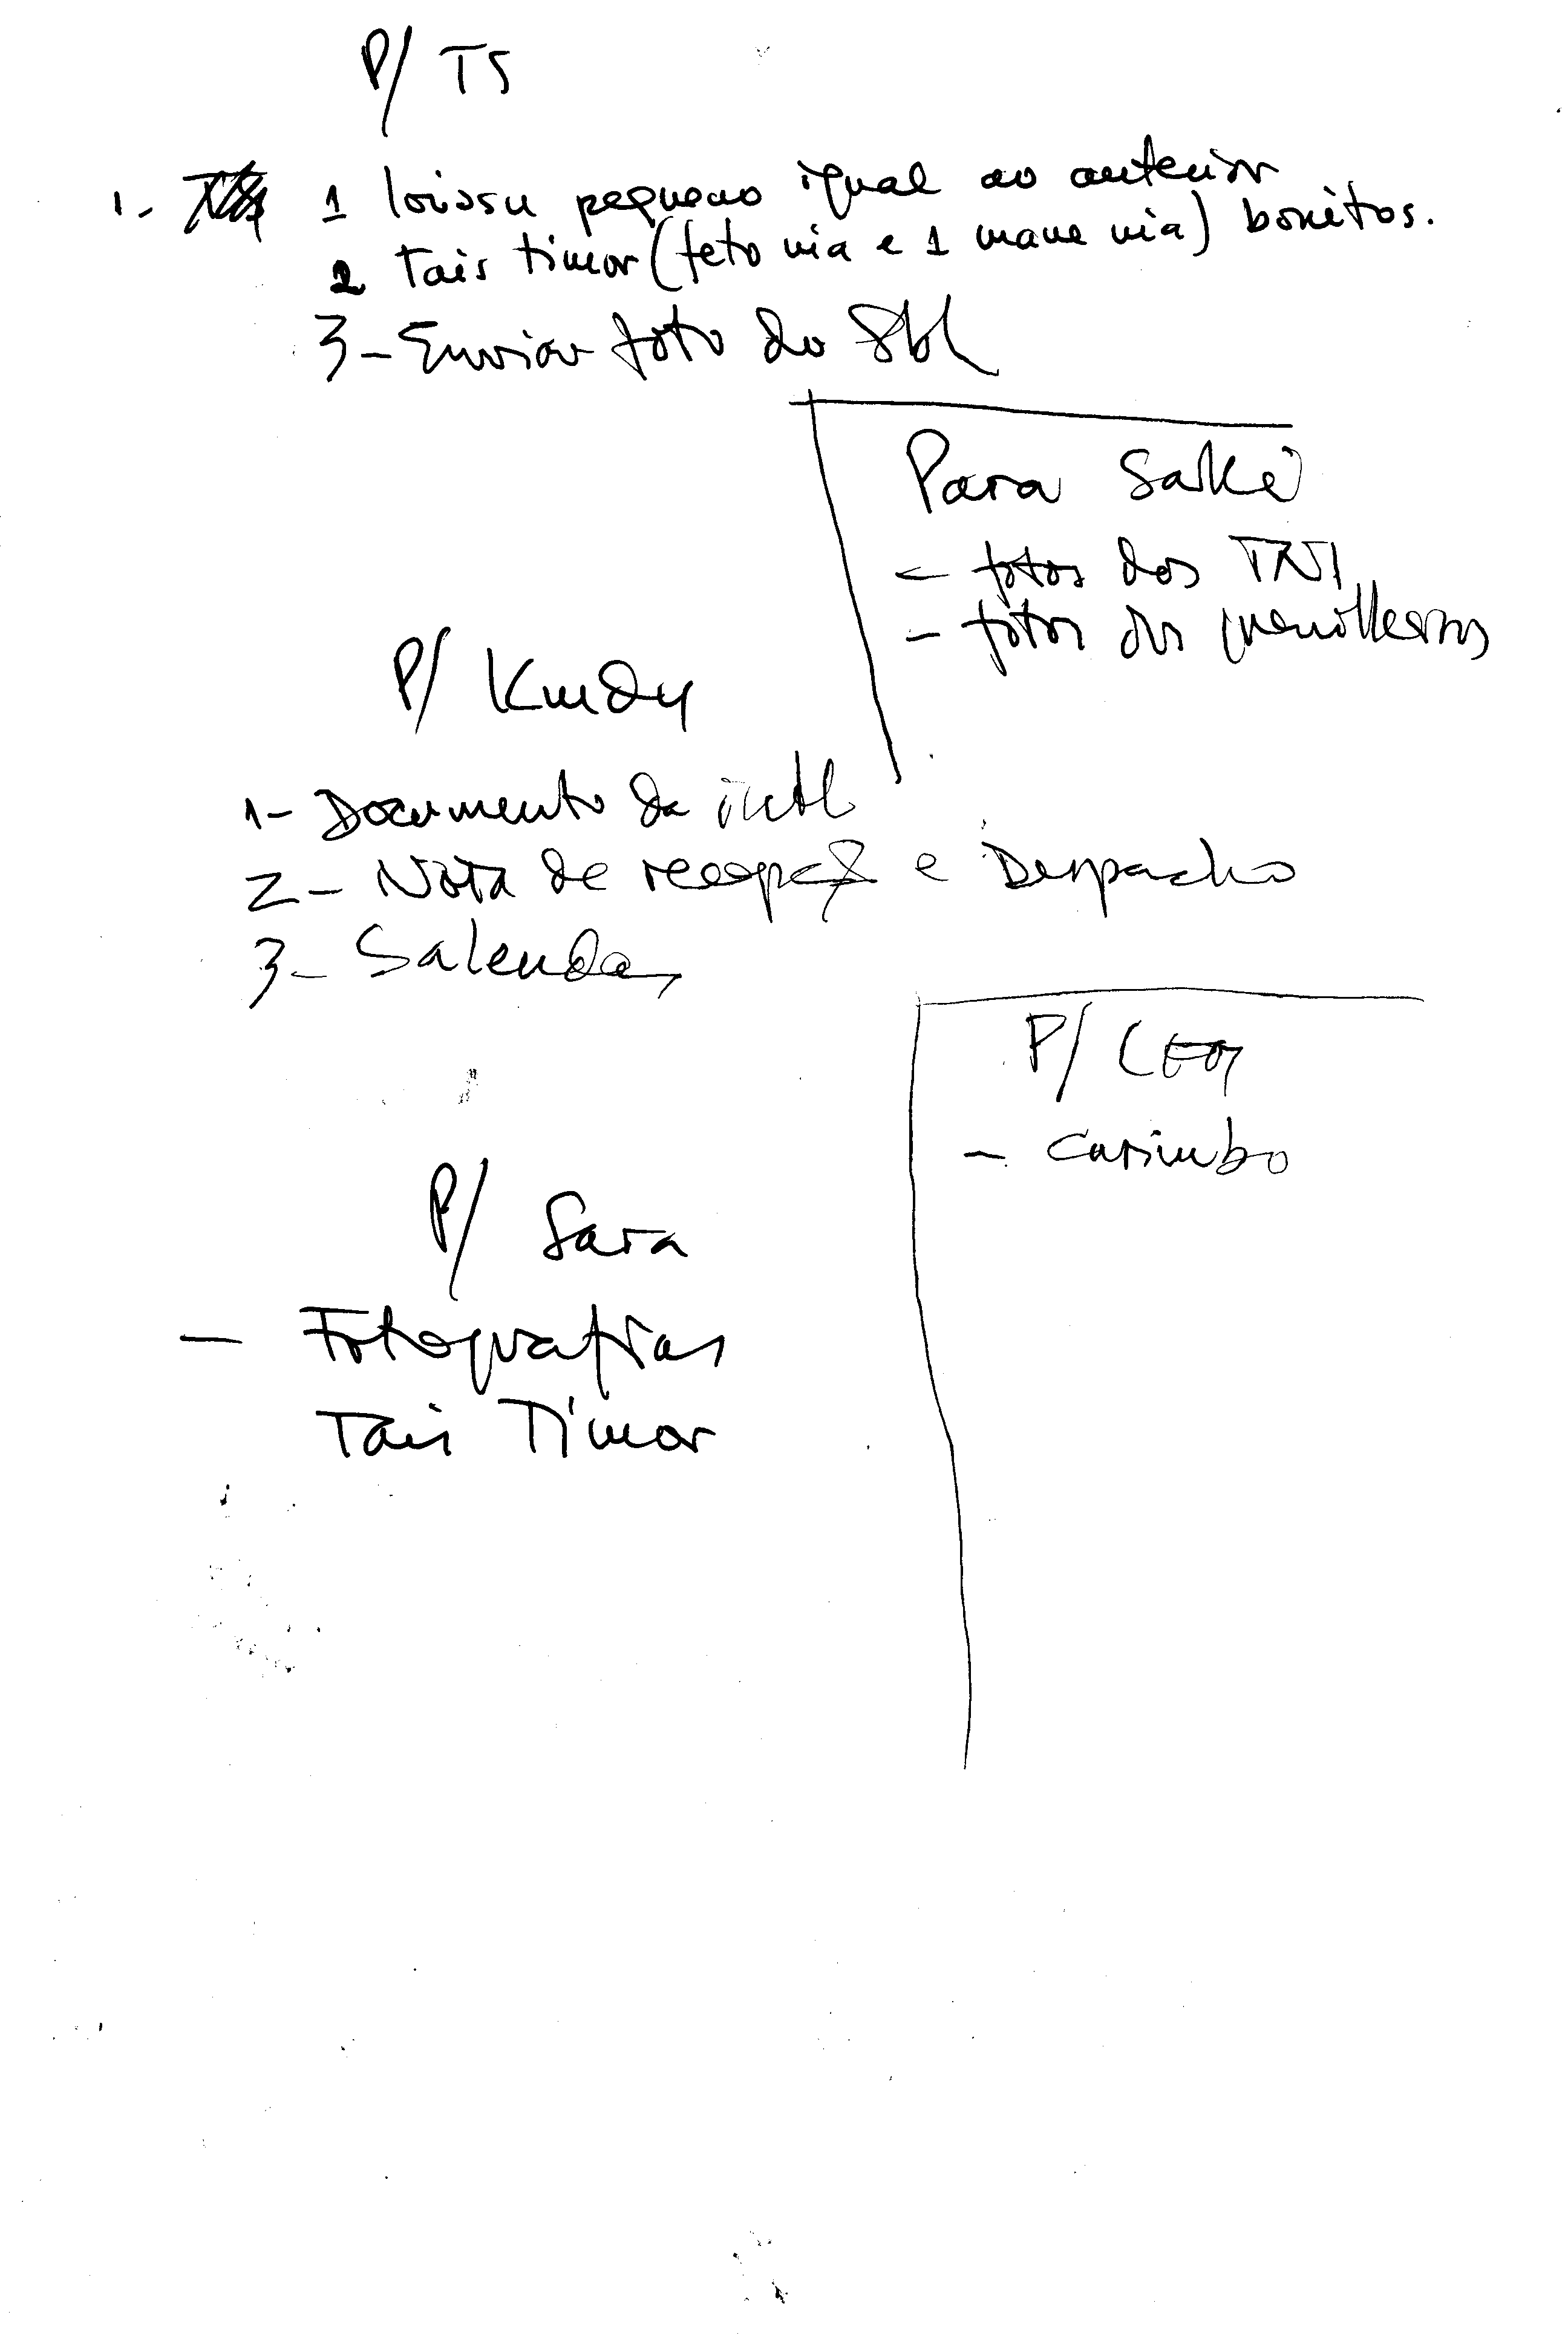 P/ TS
1- 1 loissu pequeno igual ao anterior
2 tais timor (feto nia e 1 mane nia) bonitos.
3- Enviar foto do
Para Saké
- fotos dos TNI
- fotos dos guerrilheiros
P/
1- Documento da
2- Nota de recepção e Despacho
3- Salendas
P/
- Carimbo
P/ Sara
- Fotografias
Tais Timor